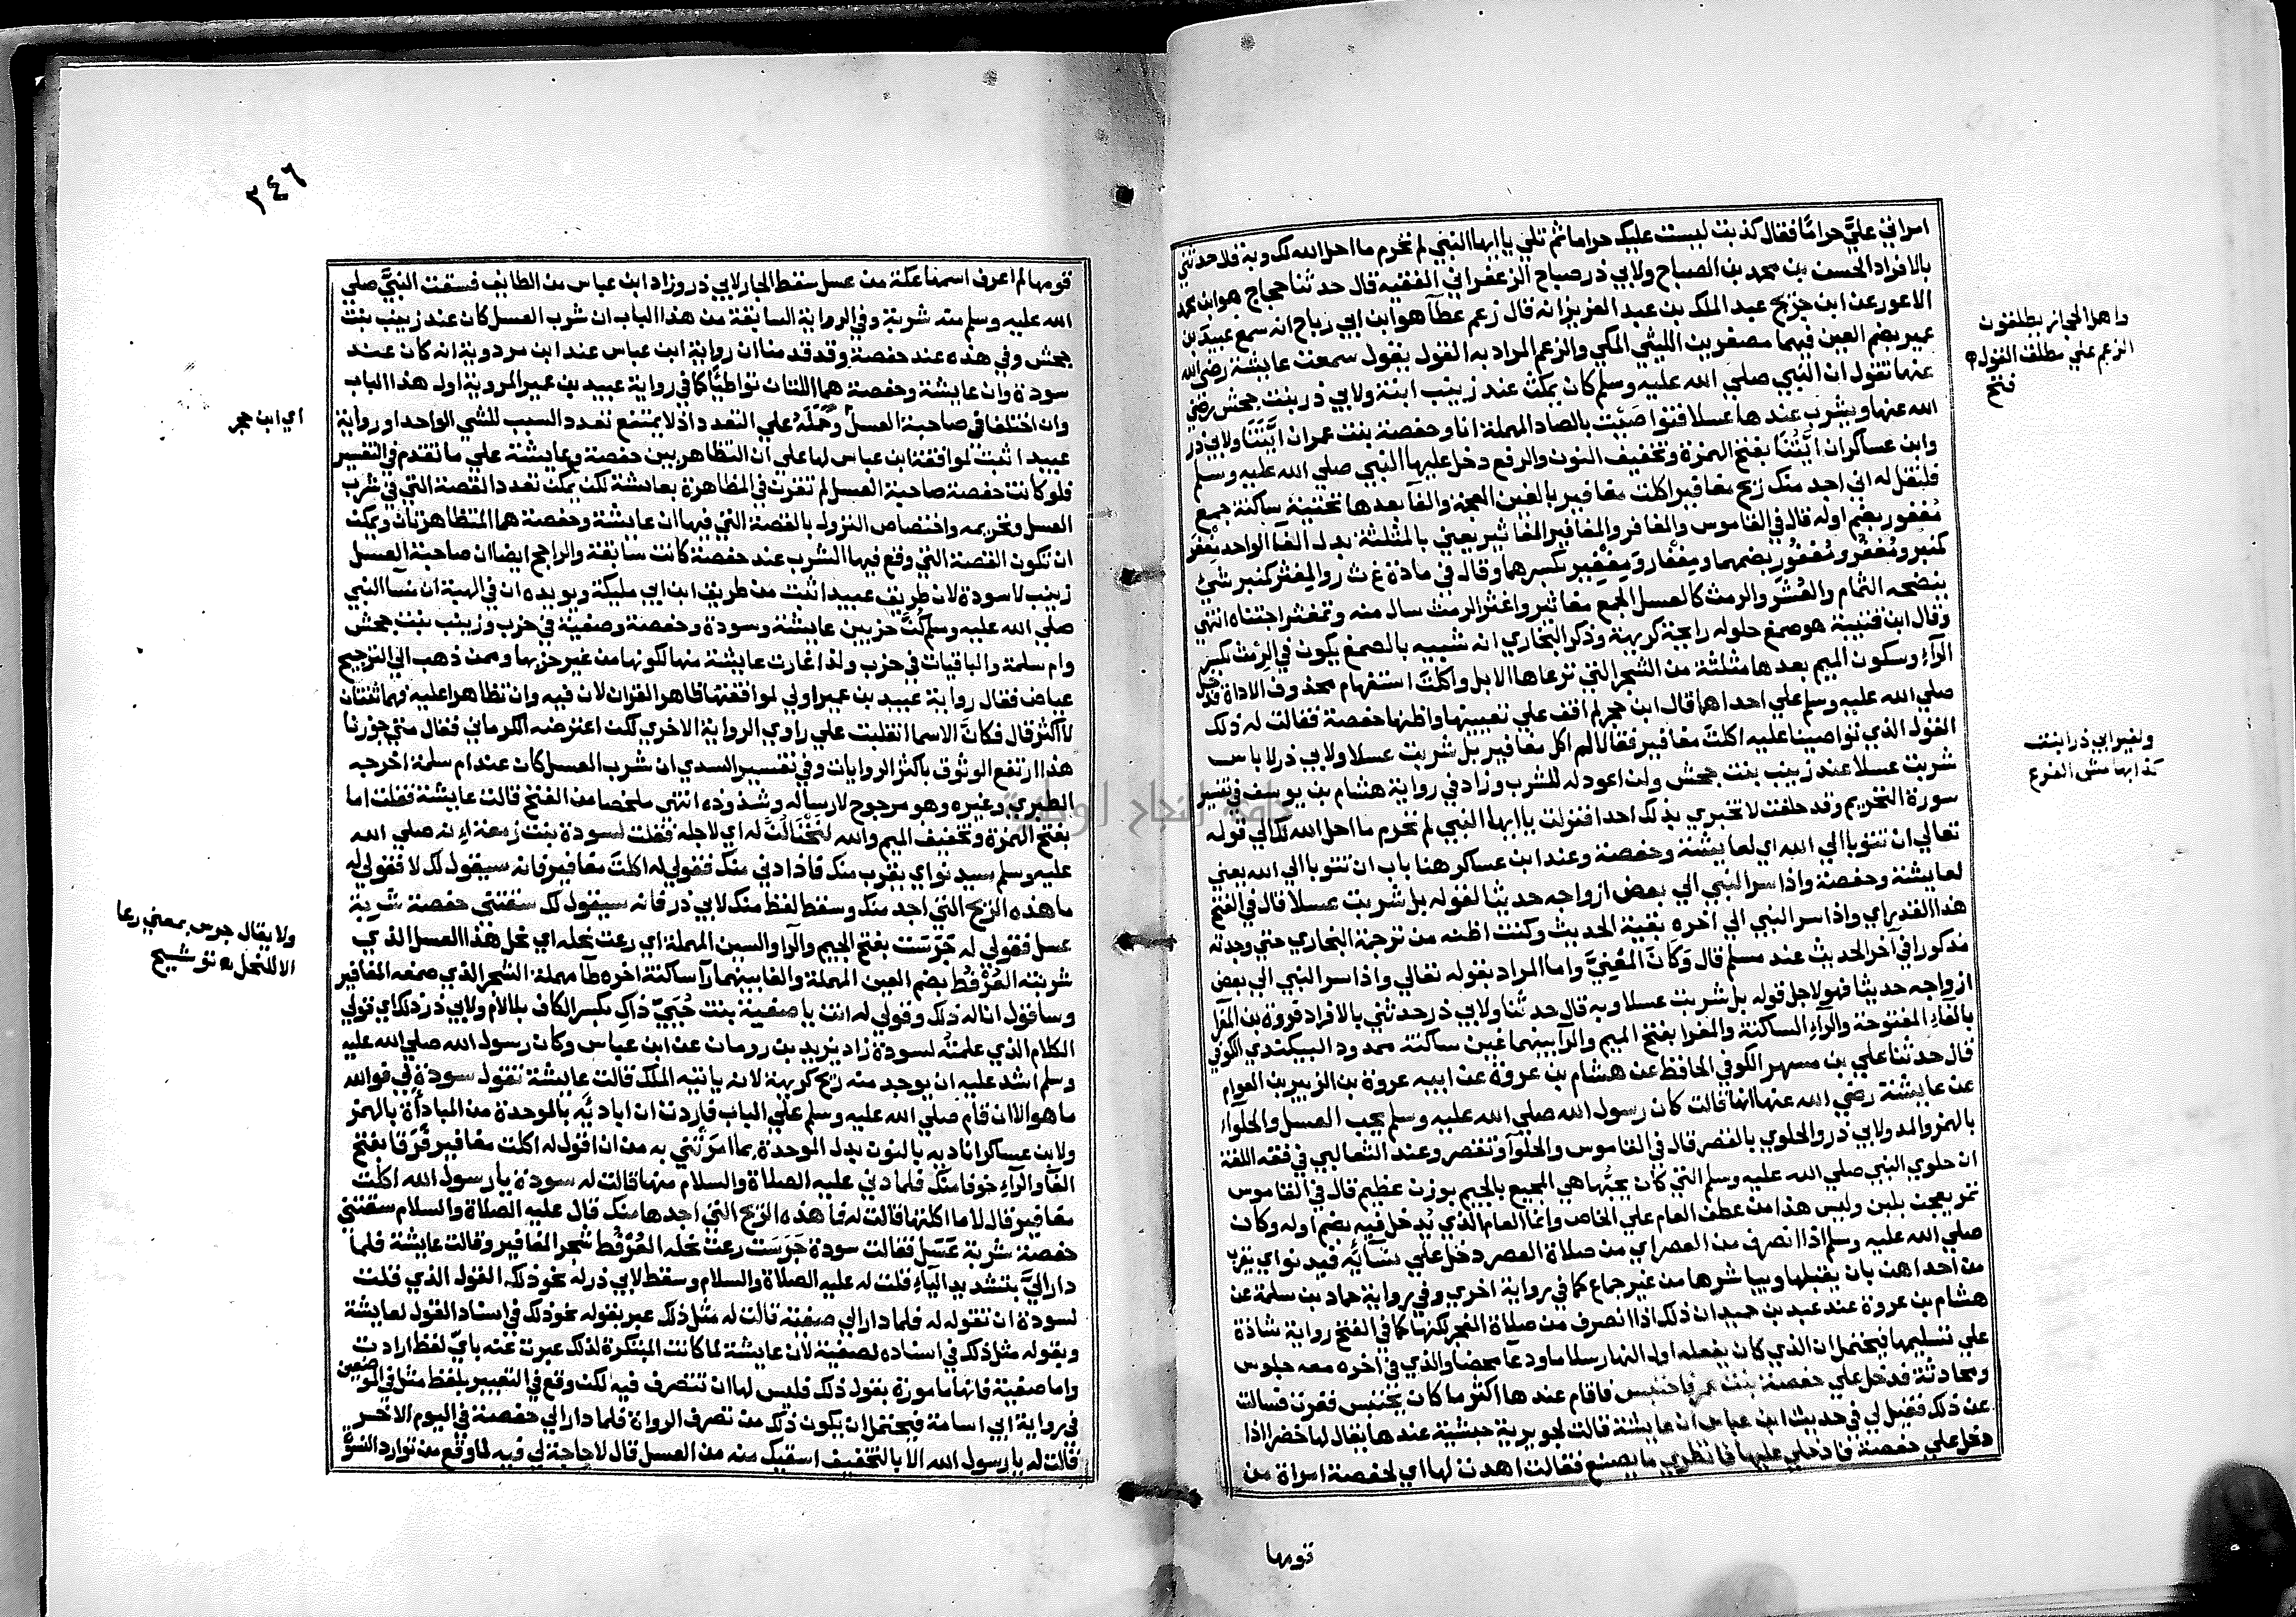 امراتي عليّ حراما فقال كذبت ليست عليك حراما ثم تلي يا ايها النبي لم تحرم ما احل الله لك وبه قال حدثني
بالافراد الحسن بن محمد بن الصباح ولابي ذر صباح الزعفراني الفقيه قال حدثنا حجاج هو ابن محمد
الاعور عن ابن جريج عبد الملك بن عبد العزيز انه قال زعم عطآ هو ابن ابي رباح انه سمع عبيد بن
عمير بضم العين فيهما مصغرين الليثي المكي والزعم المراد به القول يقول سمعت عايشة رضي الله
عنها تقول ان النبي صلي الله عليه وسلم كان يمكث عند زينب ابنة ولابي ذر بنت جحش رضي
الله عنها ويشرب عندها عسلا فتواصَيْت بالصاد المهملة انا وحفصة بنت عمر ان ايَّتَنَا ولابي ذر
وابن عساكر ان ايَّتُنَا بفتح الهمزة وتخفيف النون والرفع دخل عليها النبي صلي الله عليه وسلم
فلتقل له اني اجد منك ريح مغافير اكلت مغافير بالغين المعجمة والفآ بعدها تحتية ساكنة جمع
مُغفور بضم اوله قال في القاموس والمغافر والمغافير المغاثير يعني بالمثلثة بدل الفآ الواحد مِغْفَر
كمنبر ومُغْفُر ومُغْفُور بضمهما ومِغْفار ومِغْفِير بكسرهما وقال في مادة غ ث ر والمِغثر كمنبر شي
ينضحه الثمام والعُشَر والرمث كالعسل الجمع مغاثير واغثر الرمث سال منه وتمغثر اجتناه انتهي
وقال ابن قتيبة هو صمغ حلو له رايحة كريهة وذكر البخاري انه شبيه بالصمغ يكون في الرِمْث بكسر
الرآء وسكون الميم بعدها مثلثة من الشجر التي ترعاها الابل واكلتَ استفهام محذوف الاداة فدخل
صلي الله عليه وسلم علي احداهما قال ابن حجر لم اقف علي تعيينها واظنها حفصة فقالت له ذلك
القول الذي تواصينا عليه اكلت مغافير فقال لا لم اكل مغافير بل شربت عسلا ولابي ذر لا باس
شربت عسلا عند زينب بنت جحش ولن اعود له للشرب وزاد في رواية هشام بن يوسف في تفسير
سورة التحريم وقد حلفت لا تخبري بذلك احدا فنزلت يا ايها النبي لم تحرم ما احل الله لك الي قوله
تعالي ان تتوبا الي الله اي لعايشة وحفصة وعند ابن عساكر هنا باب ان تتوبا الي الله يعني
لعايشة وحفصة واذ اسر النبي الي بعض ازواجه حديثا لقوله بل شربت عسلا قال في الفتح
هذا القدر اي واذ اسر النبي الي اخره بقية الحديث وكنت اظنه من ترجمة البخاري حتي وجدته
مذكورا في آخر الحديث عند مسلم قال وكان المعنيَّ واما المراد بقوله تعالي واذ اسر النبي الي بعض
ازواجه حديثا فهو لاجل قوله بل شربت عسلا وبه قال حدثنا ولابي ذر حدثني بالافراد فروة بن المغرا
بالفآء المفتوحة والرآء الساكنة والمغرا بفتح الميم والرآ بينهما غين ساكنة ممدود البيكندي الكوفي
قال حدثنا علي بن مسهر الكوفي الحافظ عن هشام بن عروة عن ابيه عروة بن الزبير بن العوام
عن عايشة رضي الله عنها انها قالت كان رسول الله صلي الله عليه وسلم يحب العسل والحلوآء
بالهمز والمد ولابي ذر والحلوي بالقصر قال في القاموس والحلوآ وتقصر وعند الثعالبي في فقه اللغة
ان حلوي النبي صلي الله عليه وسلم التي كان يحبُّها هي المجيع بالجيم بوزن عظيم قال في القاموس
تمر يعجن بلبن وليس هذا من عطف العام علي الخاص وانما العام الذي يُدخل فيه بضم اوله وكان
صلي الله عليه وسلم اذا انصرف من العصر اي من صلاة العصر دخل علي نسآيه فيدنو اي يقرب
من احداهن بان يقبلها ويباشرها من غير جماع كما في رواية اخري وفي رواية حماد بن سلمة عن
هشام بن عروة عند عبد بن حميد ان ذلك اذا انصرف من صلاة الفجر لكنها كما في الفتح رواية شاذة
علي تسليمها فيحتمل ان الذي كان يفعله اول النهار سلاما ودعآ محضا والذي في اخره معه جلوس
ومحادثة فدخل علي حفصة بنت عمر فاحتبس فاقام عندها اكثر ما كان يحتبس فغرت فسالت
عن ذلك فقيل لي في حديث ابن عباس ان عايشة قالت لجويرية حبشية عندها يقال لها خضرا اذا
دخل علي حفصة فادخلي عليها فانظري ما يصنع فقالت اهدت لها اي لحفصة امراة من
قومها
واهل الحجاز يطلقون
الزعم علي مطلق القول
فتح
ولغير ابي ذر ابنت
كذا بهامش الفرع
٣٤٦
قومها لم اعرف اسمها عكة من عسل سقط الجار لابي ذر وزاد ابن عباس من الطايف فسقت النبيَّ صلي
الله عليه وسلم منه شربة وفي الرواية السابقة من هذا الباب ان شرب العسل كان عند زينب بنت
جحش وفي هذه عند حفصة وقد قدمنا ان رواية ابن عباس عند ابن مردوية انه كان عند
سودة وان عايشة وحفصة هما اللتان تواطيتا كما في رواية عبيد بن عمير المروية اول هذا الباب
وان اختلفا في صاحبة العسل وحَمَلَهُ علي التعدد اذ لا يمتنع تعدد السبب للشي الواحد او رواية
عبيد اثبت لموافقة ابن عباس لها علي ان المتظاهرتين حفصة وعايشة علي ما تقدم في التفسير
فلو كانت حفصة صاحبة العسل لم تقرن في المظاهرة بعايشة لكن يمكن تعدد القصة التي في شرب
العسل وتحريمه واختصاص النزول بالقصة التي فيها ان عايشة وحفصة هما المتظاهرتان ويمكن
ان تكون القصة التي وقع فيها الشرب عند حفصة كانت سابقة والراجح ايضا ان صاحبة العسل
زينب لا سودة لان طريق عبيد اثبت من طريق ابن ابي مليكة ويويده ان في الهبة ان نسآ النبي
صلي الله عليه وسلم كُنَّ حزبين عايشة وسودة وحفصة وصفية في حزب وزينب بنت جحش
وام سلمة والباقيات في حزب ولذا غارت عايشة منها لكونها من غير حزبها وممن ذهب الي الترجيح
عياض فقال رواية عبيد بن عمير اولي لموافقتها ظاهر القران لان فيه وان تظاهرا عليه فهما ثنتان
لا اكثر قال فكانّ الاسما انقلبت علي راوي الرواية الاخري لكن اعترضه الكرماني فقال متي جوزنا
هذا ارتفع الوثوق باكثر الروايات وفي تفسير السدي ان شرب العسل كان عند ام سلمة اخرجه
الطبري وغيره وهو مرجوح لارساله وشذوذه انتهي ملخصا من الفتح قالت عايشة فقلت اما
بفتح الهمزة وتخفيف الميم والله لنَحْتالَنَّ له اي لاجله فقلت لسودة بنت زمعة انه صلي الله
عليه وسلم سيدنو اي يقرب منك فاذا دني منك فقولي له اكلتَ مغافير فانه سيقول لك لا فقولي له
ما هذه الريح التي اجد منك وسقط لفظ منك لابي ذر فانه سيقول لك سقتني حفصة شربة
عسل فقولي له جَرَسَت بفتح الجيم والرآ والسين المهملة اي رعت نحله اي نحل هذا العسل الذي
شربته العُرْفُط بضم العين المهملة والفا بينهما رآ ساكنة اخره طآ مهملة الشجر الذي صمغه المغافير
وساقول انا له ذلك وقولي له انت يا صفية بنت حُيَيّ ذاكِ بكسر الكاف بلا لام ولابي ذر ذلك اي قولي
الكلام الذي علمتُه لسودة زاد يزيد بن رومان عن ابن عباس وكان رسول الله صلي الله عليه
وسلم اشد عليه ان يوجد منه ريح كريهة لانه ياتيه الملك قالت عايشة تقول سودة لي فوالله
ما هو الا ان قام صلي الله عليه وسلم علي الباب فاردت ان اباديَه بالموحدة من المبادأة بالهمز
ولابن عساكر اناديه بالنون بدل الموحدة بما امرَتْني به من ان اقول له اكلت مغافير فَرَقا بفتح
الفآ والرآء خوفا منك فلما دني عليه الصلاة والسلام منها قالت له سودة يا رسول الله اكلت
مغافير قال لا ما اكلتها قالت له فما هذه الريح التي اجدها منك قال عليه الصلاة والسلام سقتني
حفصة شربة عَسَل فقالت سودة جَرَسَت رعت نحله العُرْفُط شجر المغافير وقالت عايشة فلما
دار اليَّ بتشديد اليآء قلت له عليه الصلاة والسلام وسقط لابي ذر له نحو ذلك القول الذي قلت
لسودة ان تقوله له فلما دار الي صفية قالت له مثل ذلك عبر بقوله نحو ذلك في اسناد القول لعايشة
وبقوله مثل ذلك في اسناده لصفية لان عايشة لما كانت المبتكرة لذلك عبرت عنه بايّ لفظ ارادت
واما صفية فانها مامورة بقول ذلك فليس لها ان تتصرف فيه لكن وقع في التعبير بلفظ مثل في الموضعين
في رواية ابي اسامة فيحتمل ان يكون ذلك من تصرف الرواة فلما دار الي حفصة في اليوم الاخر
قالت له يا رسول الله الا بالتخفيف اسقيك منه من العسل قال لا حاجة لي فيه لما وقع من توارد النسوة
اي ابن حجر
ولا يقال جرس بمعني رعا
الا للنحل توشيح
جامعة النجاح الوطنية